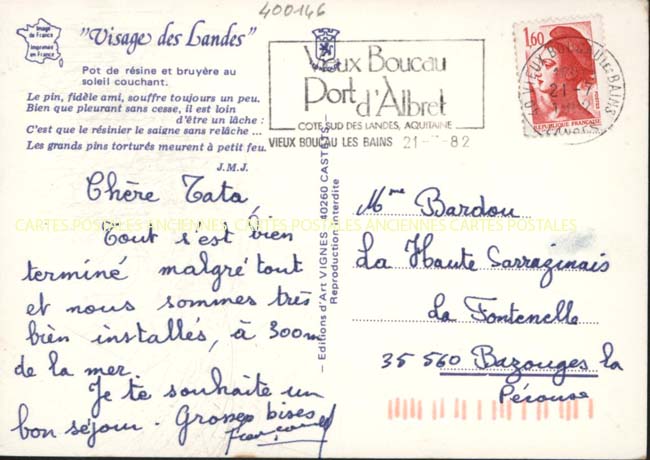 400146
Image
de France
Imprimée
en France
"Visage des Landes"
Pot de résine et bruyère au
soleil couchant.
Le pin, fidèle ami, souffre toujours un peu.
Bien que pleurant sans cesse, il est loin
d'être un lâche :
C'est que le résinier le saigne sans relâche ...
Les grands pins torturés meurent à petit feu.
J.M.J.
Vieux Boucau
Port d'Albret
COTE SUD DES LANDES, AQUITAINE
VIEUX BOUCAU LES BAINS 21-7-82
1,60
REPUBLIQUE FRANÇAISE
VIEUX BOUCAU les BAINS
21-7
Chère Tata,
Tout s'est bien
terminé malgré tout
et nous sommes très
bien installés, à 300m
de la mer.
Je te souhaite un
bon séjour. Grosses bises
— Editions d'Art VIGNES - 40260 CASTETS —
Reproduction interdite
Mme Bardou
La Haute Sarrazinais
La Fontenelle
35 560 Bazouges la
Pérouse
CARTES POSTALES ANCIENNES CARTES POSTALES ANCIENNES CARTES POSTALES